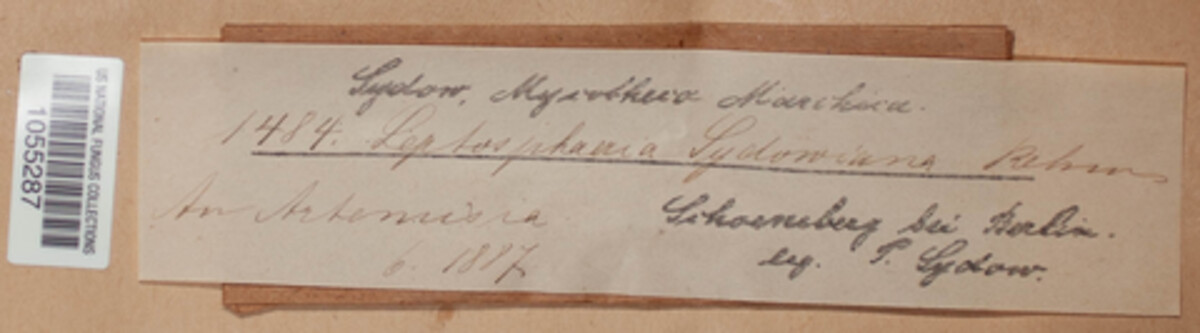 US NATIONAL FUNGUS COLLECTIONS
1055287
Sydow, Mycotheca Marchica.
1484. Leptosphaeria Sydowiana Rehm
An Artemisia
6. 1887
Schoeneberg bei Berlin.
leg. P. Sydow.